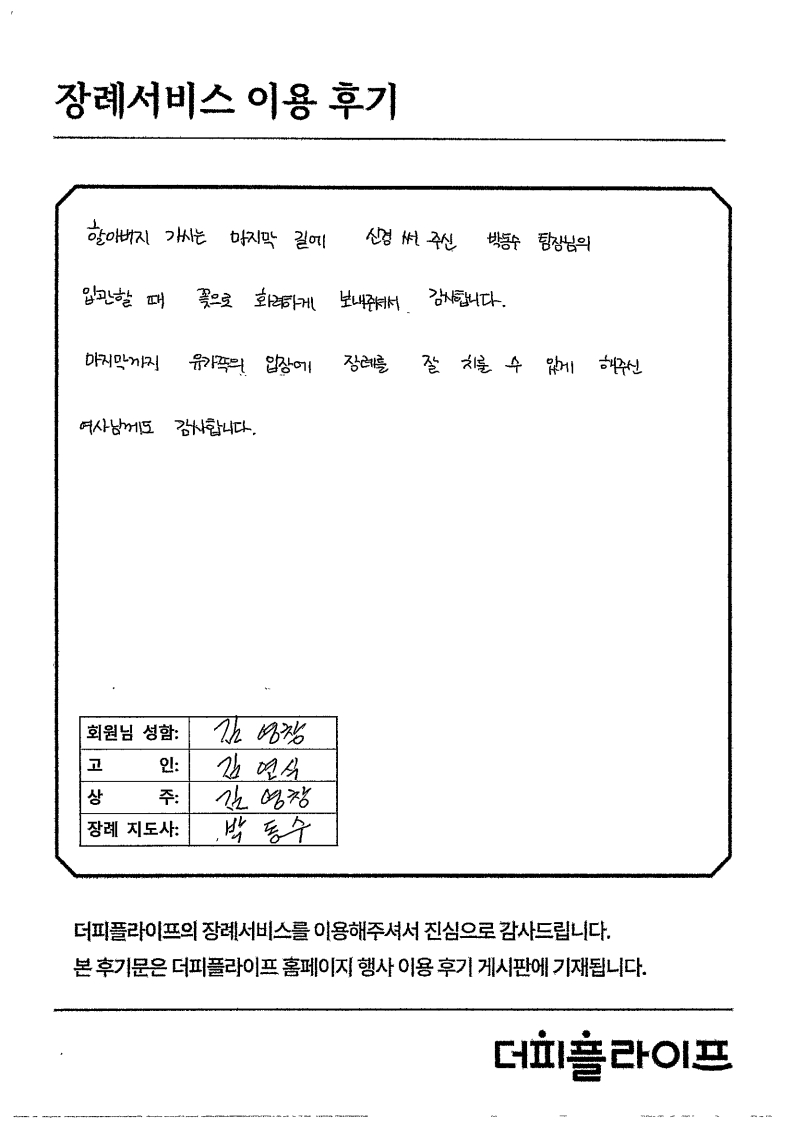 장례서비스 이용 후기
할아버지 가시는 마지막 길에 신경 써 주신 박동수 팀장님의
입관할 때 꽃으로 화려하게 보내줘서 감사합니다.
마지막까지 유가족의 입장에 장례를 잘 치룰 수 있게 해주신
여사님께도 감사합니다.
회원님 성함: 김영창
고 인: 김연식
상 주: 김영창
장례 지도사: 박동수
더피플라이프의 장례서비스를 이용해주셔서 진심으로 감사드립니다.
본 후기문은 더피플라이프 홈페이지 행사 이용 후기 게시판에 기재됩니다.
더피플라이프